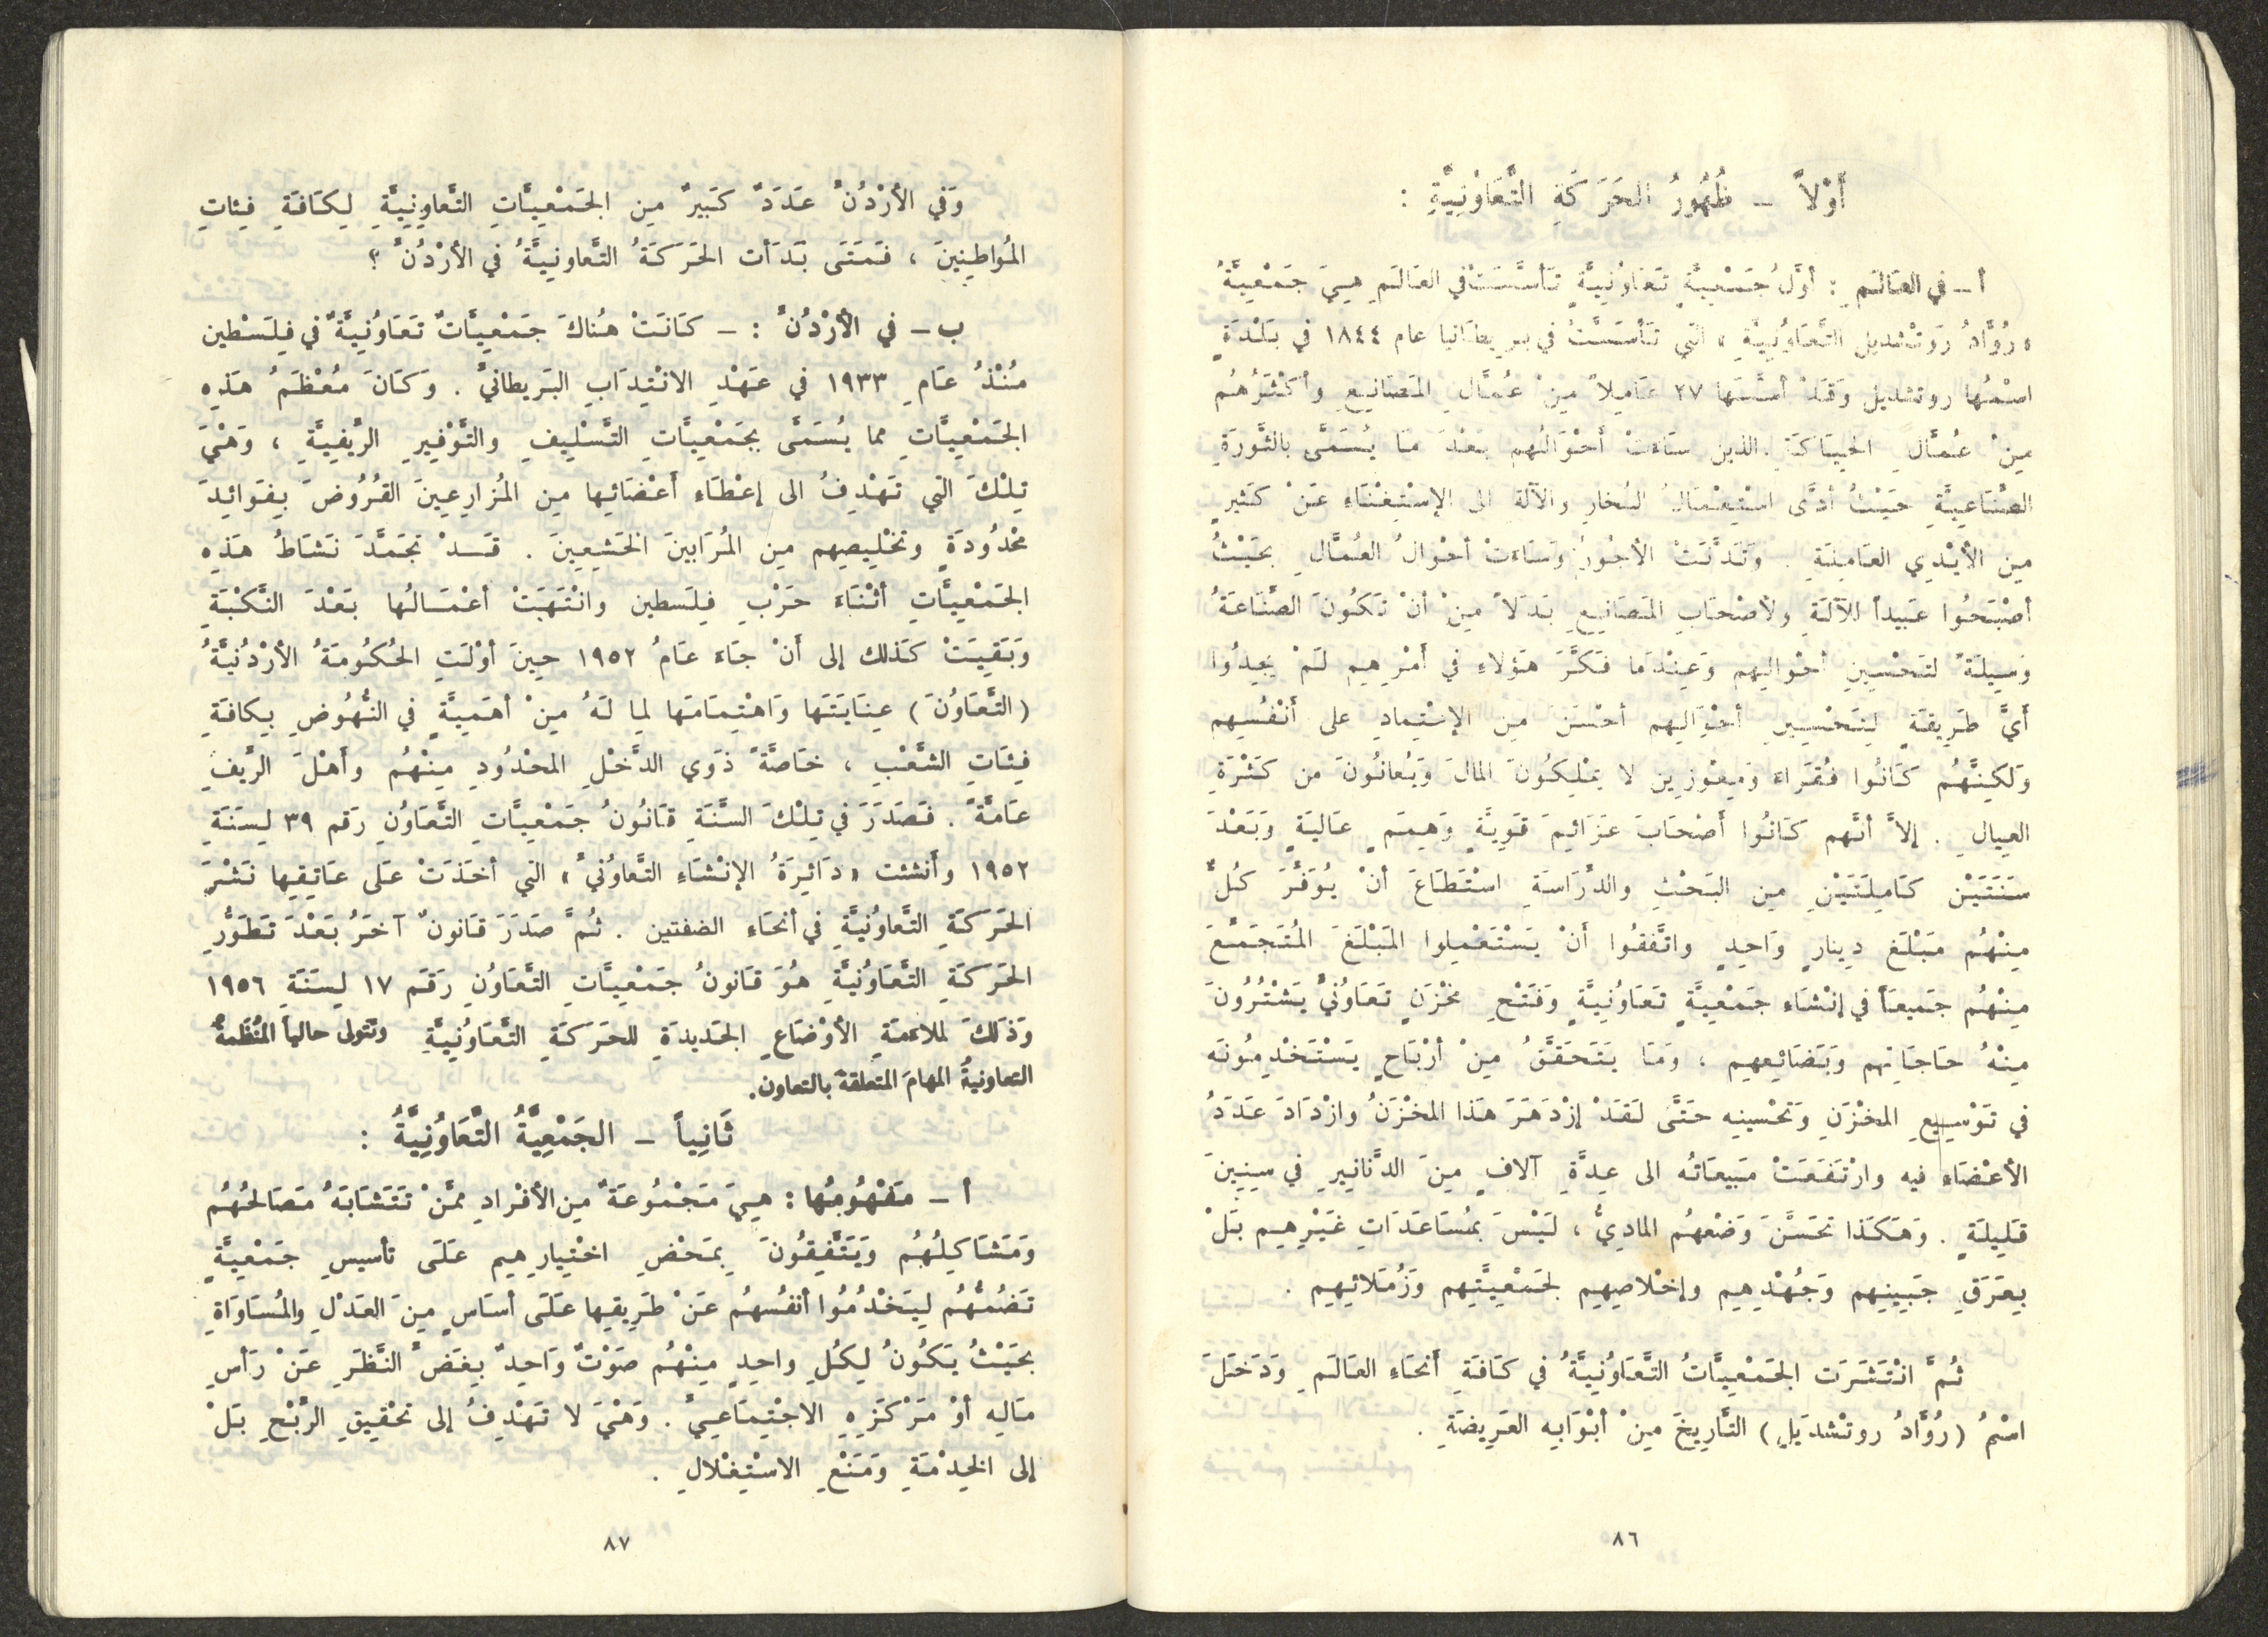 أَوَّلاً – ظُهُورُ الحَرَكَةِ التَّعَاوُنِيَّةِ :
أ – في العَالَمِ : أوَّلُ جَمْعِيَّةٍ تَعَاوُنِيَّةٍ تَأسَّسَتْ في العَالَمِ هِيَ جَمْعِيَّةُ
« رُوَّادُ رَوتْشديل التَّعَاوُنِيَّةِ » التي تَأسَّسَتْ في بريطانيا عام ١٨٤٤ في بَلْدَةٍ
اسْمُها روتشديل وَقَدْ أسَّسَها ٢٧ عَامِلاً مِنْ عُمَّالِ المَصَانِعِ وأكْثَرُهُم
مِنْ عُمَّالِ الحِيَاكَةِ . الذين سَاءَتْ أحْوَالُهم بَعْدَ مَا يُسَمَّى بالثَّورَةِ
الصِّنَاعِيَّةِ حَيْثُ أدَّى اسْتِعْمَالُ البُخارِ والآلة الى الإسْتِغْنَاءِ عَنْ كَثيرٍ
مِنَ الأيْدِي العَامِلَةِ . وَتَدَنَّتْ الأجُورُ وَسَاءَتْ أحْوَالُ العُمَّالِ بحَيْثُ
أصْبَحُوا عَبيداً للآلَةِ ولأصْحَابِ المَصَانِعِ بَدَلاً مِنْ أنْ تَكُونَ الصِّنَاعَةُ
وَسِيلَةً لتَحْسِينِ أحْوالِهِم وَعِنْدَما فَكَّرَ هَؤلاءِ في أَمْرِهِم لَمْ يَجِدُوا
أَيَّ طَرِيقَةٍ لتَحْسِينِ أحْوَالِهِم أحْسَنَ مِنَ الإعْتِمادِ على أَنْفُسِهم
وَلكِنَّهُم كَانُوا فُقَرَاء وَمِعْوزِين لا يَمْلِكُونَ المالَ وَيُعانُونَ من كَثْرَةِ
العِيالِ . إلاَّ أنَّهم كَانُوا أَصْحَابَ عَزَائِمَ قَوِيَّةٍ وَهِمَمٍ عَاليَةٍ وَبَعْدَ
سَنَتَيْنِ كَامِلَتَيْنِ مِن البَحْثِ والدِّرَاسَةِ اسْتَطَاعَ أنْ يُوَفِّرَ كُلٌّ
مِنْهُم مَبْلَغ دِينارٍ وَاحِدٍ واتَّفَقُوا أَنْ يَسْتَعْمِلوا المَبْلَغَ المُتَجَمِّعَ
مِنْهُم جَميعَاً في إنْشَاء جَمْعِيَّةٍ تَعَاوُنِيَّةٍ وَفَتْحِ مَخْزَنٍ تَعَاوُنيٍّ يَشْتُرُونَ
مِنْهُ حَاجَاتِهم وَبَضَائِعهِم ، وَمَا يَتَحَقَّقُ مِنْ أرْبَاحٍ يَسْتَخْدِمُونَه
في تَوْسِيعِ المخْزَنِ وَتَحْسينِه حَتَّى لَقَدْ إزْدَهَرَ هَذا المخْزَنُ وازْدَادَ عَدَدُ
الأعْضَاءِ فيه وارْتَفَعَتْ مَبيعَاتُه الى عِدَّةِ آلافٍ مِنَ الدَّنَانِيرِ في سِنِينَ
قَلِيلَةٍ . وَهَكَذا تَحَسَّنَ وَضْعهُم المادِيُّ ، لَيْسَ بمُسَاعَدَاتِ غَيْرِهِم بَلْ
بِعَرَقِ جَبِينِهِم وَجُهْدِهِم وإخْلاصِهِم لجَمْعِيَّتِهِم وَزُمَلائِهِم .
ثُمَّ انْتَشَرَت الجَمْعِيَّاتُ التَّعَاوُنِيَّةُ في كَافَةِ أَنحَاءِ العَالَمِ وَدَخَلَ
اسْمُ (رُوَّادُ روتْشدَيل) التَّارِيخَ مِنْ أبْوَابِه العَرِيضَةِ .
٨٦
وَفي الأرْدُنِّ عَدَدٌ كَبيرٌ مِن الجَمْعِيَّاتِ التَّعاوِنِيَّةِ لِكَافَةِ فِئاتِ
المُواطِنِينَ ، فَمَتَى بَدَأت الحَرَكَةُ التَّعاونِيَّةُ في الأرْدُنِّ ؟
ب – في الأرْدُنِّ : – كَانَتْ هُناكَ جَمْعِيَّاتٌ تَعَاوُنِيَّةٌ في فِلَسْطين
مُنْذُ عَامِ ١٩٣٣ في عَهْدِ الانْتِدَابِ البَريطانيِّ . وَكَانَ مُعْظَمُ هَذِه
الجَمْعِيَّاتِ مما يُسَمَّى بجَمْعِيَّاتِ التَّسْلِيفِ والتَّوْفِيرِ الرِّيفِيَّةِ ، وَهْيَ
تِلْكَ التي تَهْدِفُ الى إعْطَاءِ أَعْضَائِها مِن المُزارِعِينَ القُرُوضَ بِفَوَائِدَ
مَحْدُودَةٍ وتَخْلِيصِهِم مِن المُرَابينَ الجَشِعِينَ . قَدْ تَجَمَّدَ نَشَاطُ هَذِه
الجَمْعِيَّاتِ أثْنَاءَ حَرْبِ فِلَسطين وانْتَهَتْ أعْمَالُها بَعْدَ النَّكْبَةِ
وَبَقِيَتْ كَذلك إلى أَنْ جَاءَ عَامُ ١٩٥٢ حِينَ أوْلَتِ الحُكُومَةُ الأرْدُنيَّةُ
(التَّعَاوُنَ) عِنَايَتَها وَاهْتِمَامَها لِما لَهُ مِنْ أهَمِيَّةٍ في النُّهُوضِ بِكافَةِ
فِئَاتِ الشَّعْبِ ، خَاصَّةً ذَوي الدَّخْلِ المحْدُودِ مِنْهُم وأَهْلَ الرِّيفِ
عَامَّةً . فَصَدَرَ في تِلْكَ السَّنَةِ قَانُونُ جَمْعِيَّاتِ التَّعَاوُنِ رَقم ٣٩ لِسَنَةِ
١٩٥٢ وأَنشئت « دَائِرَةُ الإنْشَاءِ التَّعاوُنيِّ » التي أخَذَتْ عَلى عَاتِقِها نَشْرَ
الحَرَكَةِ التَّعاوُنيَّةِ في أنحَاءِ الضفتين . ثُمَّ صَدَرَ قَانونٌ آخَرُ بَعْدَ تَطَوُّرِ
الحَرَكَةِ التَّعَاوُنيَّةِ هُوَ قَانونُ جَمْعِيَّاتِ التَّعَاوُنِ رَقَم ١٧ لِسَنَةِ ١٩٥٦
وَذَلكَ لملاءمَةِ الأوْضَاعِ الجَديدَةِ للحَرَكَةِ التَّعَاوُنِيَّةِ وتتولى حالياً المنُظَمةُ
التعاونيةُ المهامَ المتعلقةَ بالتعاون.
ثَانِياً – الجَمْعِيَّةُ التَّعَاوُنِيَّةُ :
أ – مَفْهُومُها : هِيَ مَجْمُوعَةٌ مِن الأفْرادِ ممَّنْ تَتَشَابَهُ مَصَالحُهُم
وَمَشَاكِلُهُم وَيَتَّفِقُونَ بِمَحْضِ اخْتِيارِهِم عَلَى تأسيسِ جَمْعِيَّةٍ
تَضُمُّهُم لِيَخْدُمُوا أنفُسهُم عَنْ طَرِيقِها عَلَى أسَاسٍ مِنَ العَدْلِ والمُسَاوَاةِ
بحَيْثُ يَكُونُ لِكُلِ واحِدٍ مِنْهُم صَوْتٌ وَاحِدٌ بِغَضِّ النَّظَرِ عَنْ رَأسِ
مَالِهِ أوْ مَرْكَزِهِ الاجْتِمَاعِيِّ . وَهْيَ لا تَهْدِفُ إلى تحْقِيقِ الرِّبْحِ بَلْ
إلى الخِدْمَةِ وَمَنْعِ الاسْتِغْلالِ .
٨٧